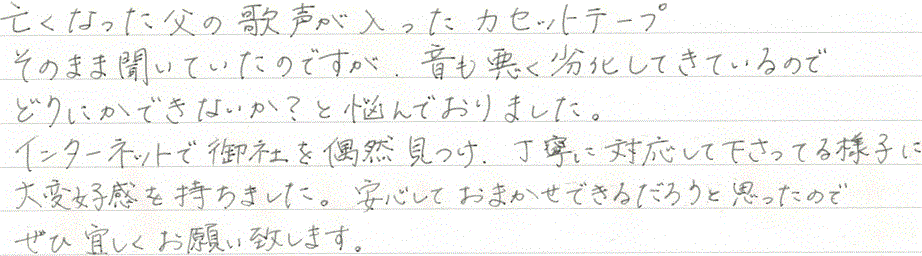 亡くなった父の歌声が入ったカセットテープ
そのまま聞いていたのですが、音も悪く劣化してきているので
どうにかできないか?と悩んでおりました。
インターネットで御社を偶然見つけ、丁寧に対応して下さってる様子に
大変好感を持ちました。安心しておまかせできるだろうと思ったので
ぜひ宜しくお願い致します。